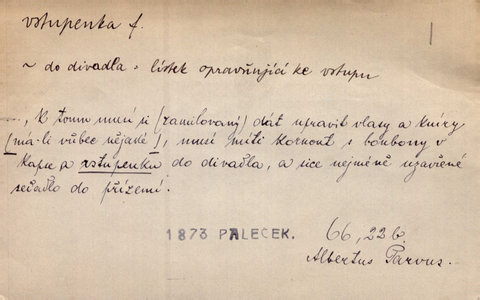 vstupenka f.
~ do divadla = lístek opravňující ke vstupu
..., K tomu musí si (zamilovaný) dát upravit vlasy a kníry
[má-li vůbec nějaké], musí míti kornout s bonbony v
kapse a vstupenku do divadla, a sice nejméně uzavřené
sedadlo do přízemí.
1873 PALEČEK.
66, 22b,
Albertus Parvus.